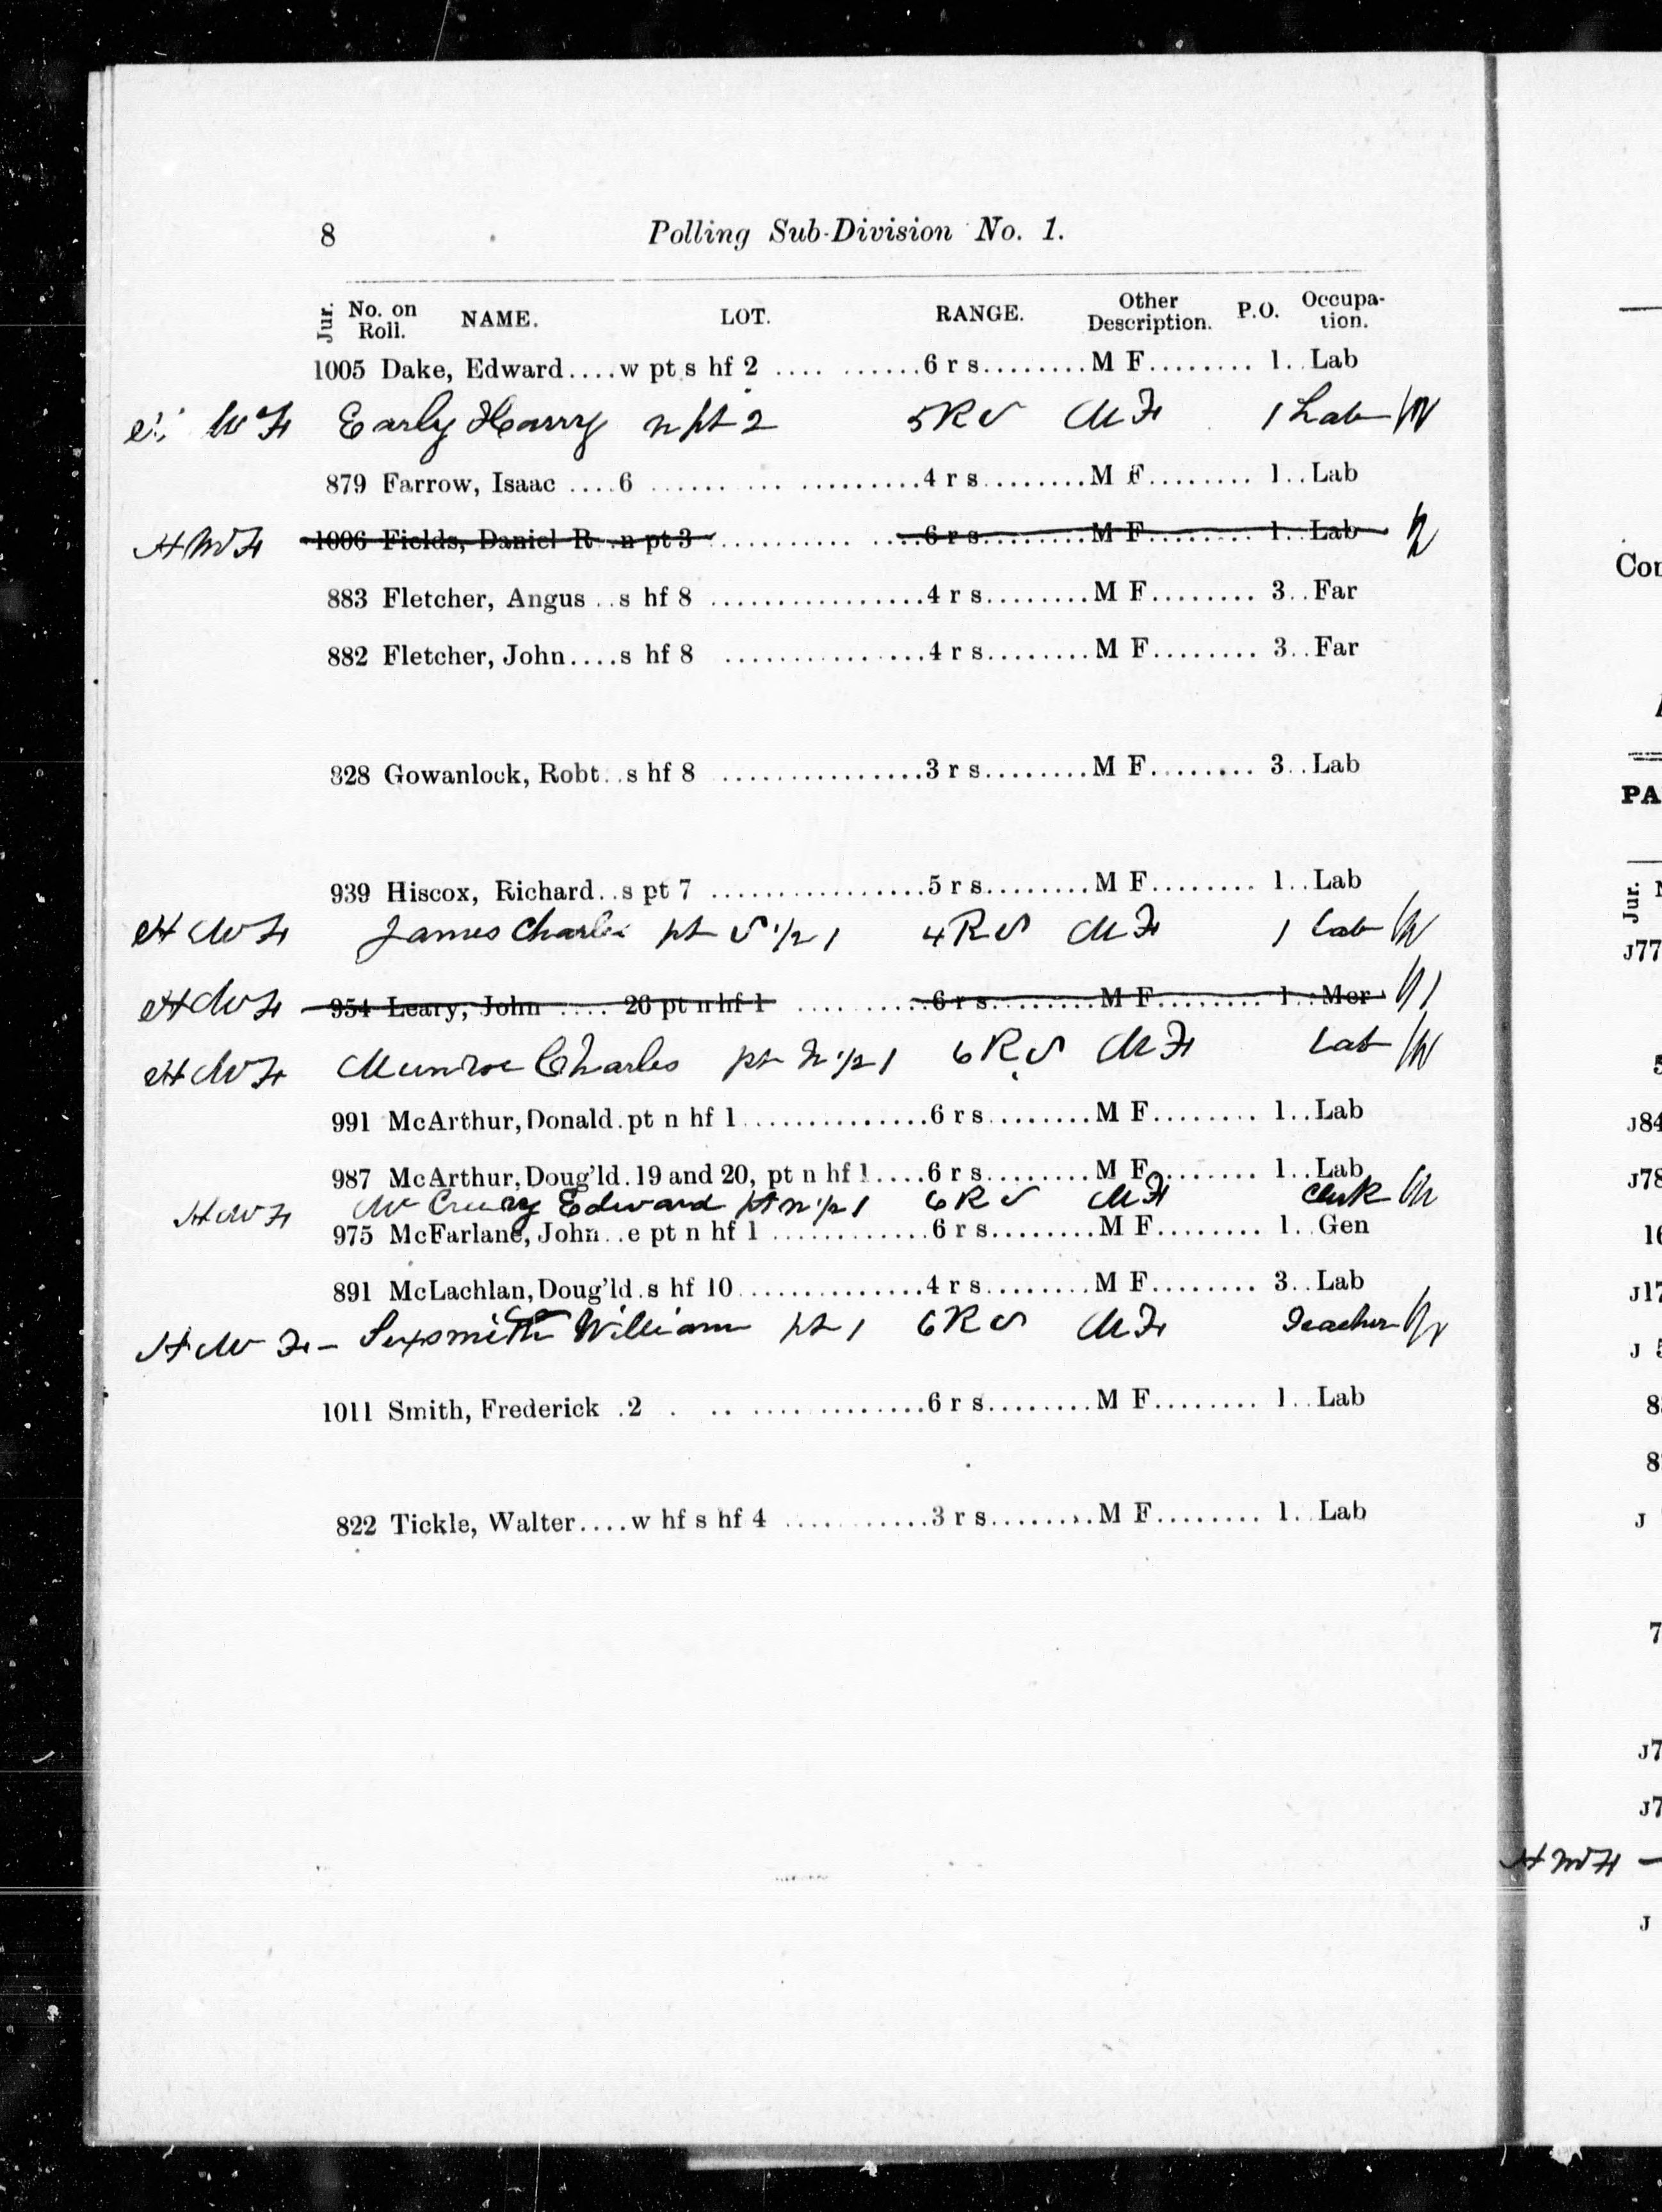 8 Polling Sub-Division No. 1.
Jur. No. on Roll. NAME. LOT. RANGE. Other Description. P.O. Occupa-tion.
1005 Dake, Edward....w pt s hf 2 .... .......6 r s.........M F......... 1..Lab
Early Harry n pt 2 5 R S M F 1 Lab
879 Farrow, Isaac ....6 ...... ... ..........4 r s.........M F......... 1..Lab
H W F 1006 Fields, Daniel R..n pt 3 ........... ....6 r s.........M F......... 1..Lab
883 Fletcher, Angus ..s hf 8 ................4 r s.........M F........ 3..Far
882 Fletcher, John....s hf 8 ...............4 r s.........M F........ 3..Far
828 Gowanlock, Robt..s hf 8 ................3 r s.........M F........ 3..Lab
939 Hiscox, Richard..s pt 7 ................5 r s.........M F........ 1..Lab
H W F James Charles pt S 1/2 1 4 R S M F 1 Lab
H W F 954 Leary, John .... 26 pt n hf 1 ..........6 r s.........M F......... 1..Mer
H W F Munroe Charles pt N 1/2 1 6 R S M F Lab
991 McArthur, Donald.pt n hf 1..............6 r s.........M F........ 1..Lab
987 McArthur, Doug'ld.19 and 20, pt n hf 1....6 r s.........M F......... 1..Lab
H W F Edward pt n 1/2 1 6 R S M F Clerk
975 McFarlane, John..e pt n hf 1 ............6 r s........M F......... 1..Gen
891 McLachlan, Doug'ld.s hf 10..............4 r s.........M F........ 3..Lab
H W F - Sexsmith William pt 1 6 R S M F Teacher
1011 Smith, Frederick .2 . .. .............6 r s.........M F........ 1..Lab
822 Tickle, Walter....w hf s hf 4 ............3 r s.........M F........ 1..Lab
Con
PA
Jur.
J77
5
J84
J78
16
J17
J 5
8
8
J
7
J7
J7
H W F
J